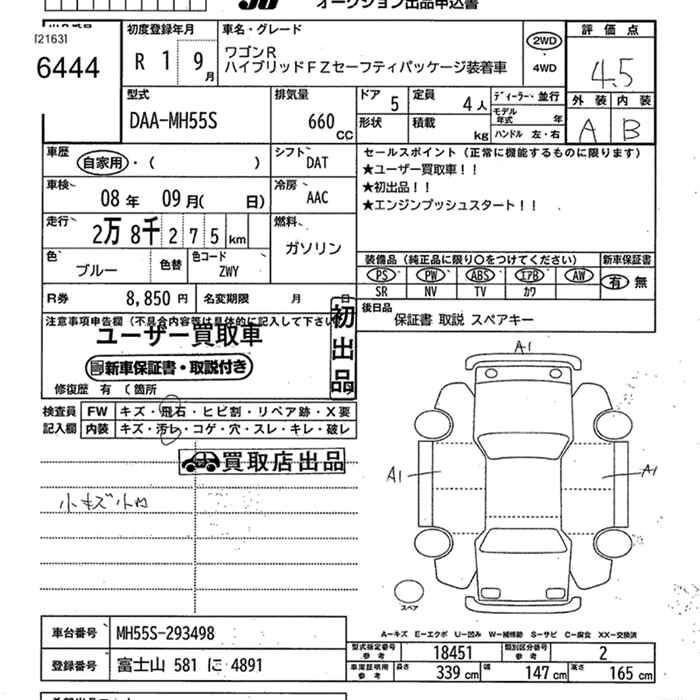 オークション出品申込書
[2163]
6444
初度登録年月
R 1 9月
車名・グレード
ワゴンR
ハイブリッドＦＺセーフティパッケージ装着車
2WD
4WD
評価点
4.5
外装 内装
A B
型式
DAA-MH55S
排気量
660 CC
ドア 5
定員 4人
形状
積載 kg
ディーラー・並行
モデル年式 年
ハンドル 左・右
車歴
自家用・( )
シフト DAT
車検 08年 09月( 日)
冷房 AAC
走行 2万 8千 2 7 5 km
燃料 ガソリン
色 ブルー
色替
色コード ZWY
R券 8,850円
名変期限 月 日
セールスポイント（正常に機能するものに限ります）
★ユーザー買取車！！
★初出品！！
★エンジンプッシュスタート！！
装備品（純正品に限り○をつけてください）
新車保証書
PS PW ABS エアB AW
有 無
SR NV TV カワ
後日品
保証書 取説 スペアキー
注意事項申告欄（不具合内容等は具体的に記入して下さい
ユーザー買取車
新車保証書・取説付き
初出品
修復歴 有 （箇所
検査員記入欄
FW キズ・飛石・ヒビ割・リペア跡・Ｘ要
内装 キズ・汚レ・コゲ・穴・スレ・キレ・破レ
買取店出品
小キズ小凹
A1
A1
A1
スペア
A－キズ E－エクボ U－凹み W－補修跡 S－サビ C－腐食 XX－交換済
車台番号 MH55S-293498
登録番号 富士山 581 に 4891
型式指定番号参考 18451
類別区分番号参考 2
車庫証明用参考 長さ 339 cm 幅 147 cm 高さ 165 cm